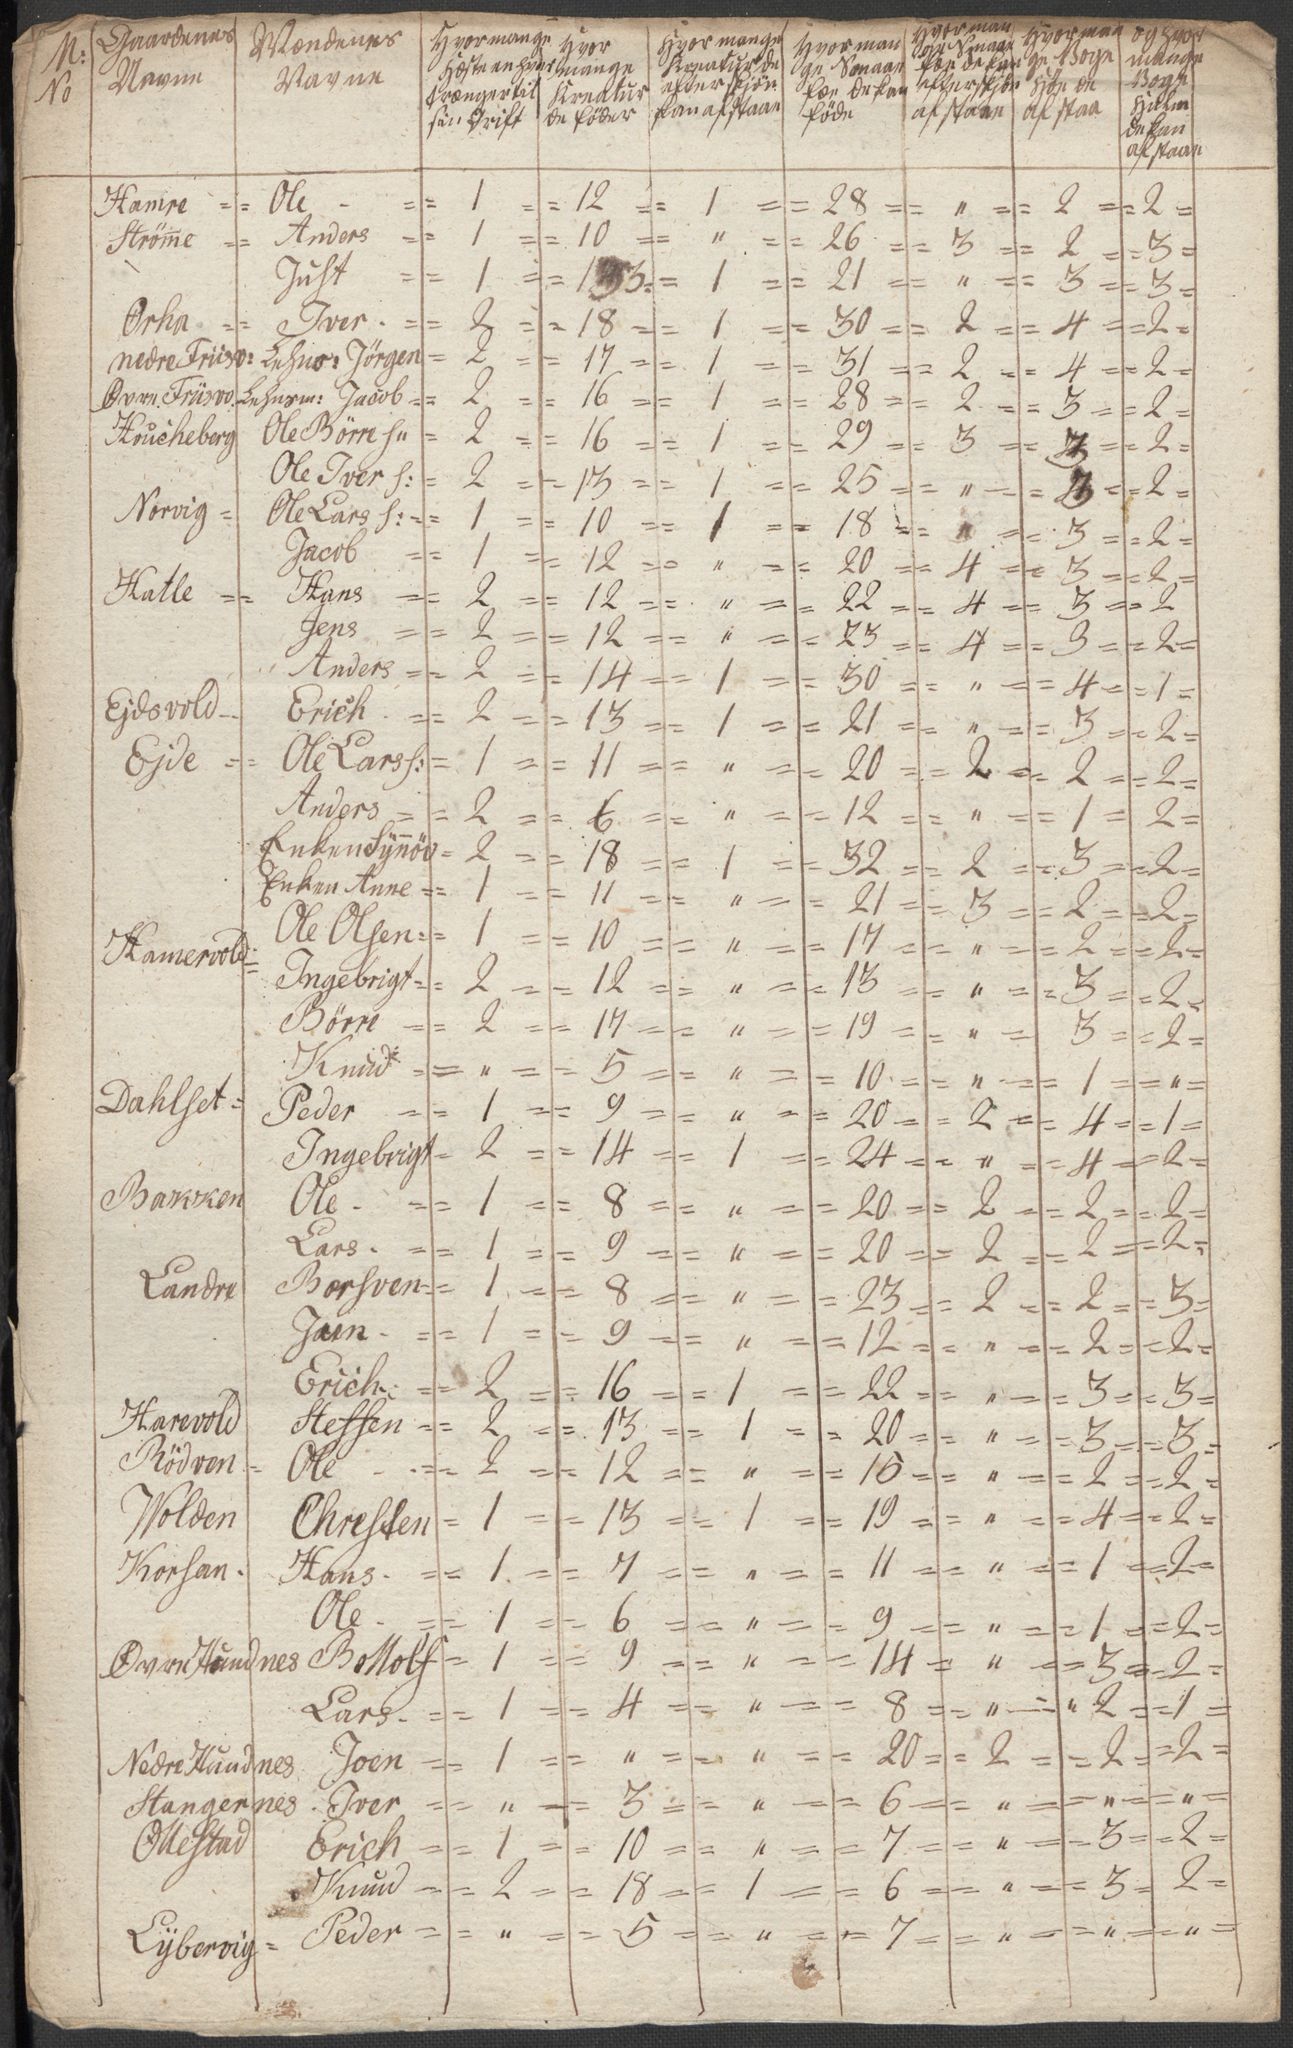 M: No | Gaardenes Navne | Mændenes Navne | Hvormange Hæste en hver trænger til sin Drift | Hvor mange Kreatur de föder | Hvor mange Kreatur de efter skjön kan afstaae | Hvor mange Smaae fæe de kan föde | Hvor mange Smaae fæe de kan efter skjön afstaae | Hvor mange Voge Höe de af staa | og hvor mange Voge Halm de kan afstaae
Hamre == Ole - == 1 == 12 == 1 == 28 == " == 2 == 2 =
Strömme == Anders == 1 == 10 == " == 26 == 3 == 2 == 3 =
Just == 1 == 13 == 1 == 21 == " == 3 == 3 =
Orha == Iver - == 2 == 18 == 1 == 30 == 2 == 4 == 2 =
nedre Friisvo: Lehns: Jörgen = 2 == 17 == 1 == 31 == 2 == 4 == 2 =
Øvre Friisvo. Lehnsm: Jacob == 2 == 16 == 1 == 28 == 2 == 3 == 2 =
Hrucheberg Ole Börre s" = 2 == 16 == 1 == 29 == 3 == 3 == 2 =
Ole Iver s: = 2 == 13 == 1 == 25 == " == 3 == 2 =
Norvig = Ole Lars s: == 1 == 10 == 1 == 18 == " == 3 == 2 =
Jacob == 1 == 12 == " == 20 == 4 == 3 == 2 =
Hatle == Hans == 2 == 12 == " == 22 == 4 == 3 == 2
Jens == 2 == 12 == " == 23 == 4 == 3 == 2 =
Anders == 2 == 14 == 1 == 30 == " == 4 == 1 =
Ejdsvold - Erich - == 2 == 13 == 1 == 21 == " == 3 == 2 =
Ejde == Ole Lars s: = 1 == 11 == " == 20 == 2 == 2 == 2 =
Anders == 2 == 6 == " == 12 == " == 1 = 2 =
Enken Synnöv = 2 == 18 == 1 == 32 == 2 == 3 == 2 =
Enken Anne == 1 == 11 == " == 21 == 3 == 2 == 2 =
Hamervold = Ole Olsen: = 1 == 10 == " == 17 == " == 2 == 2 =
Ingebrigt == 2 == 12 == " == 13 == " == 3 == 2 =
Börre == 2 == 17 == " == 19 == " = 3 == 2 =
Knud == " == 5 == " == 10 == " == 1 == " =
Dahlset = Peder == 1 == 9 == " == 20 == 2 == 4 == 1 =
Ingebrigt = 2 == 14 == 1 == 24 == " == 4 == 2 =
Bakken Ole - == 1 == 8 == " == 20 == 2 == 2 == 2 =
Lars - == 1 == 9 == " == 20 == 2 == 2 == 2 =
Landre Borsven == 1 == 8 == " == 23 == 2 == 2 == 3 =
Joen - == 1 == 9 == " == 12 == " == 2 == 2 =
Erich: == 2 == 16 == 1 == 22 == " == 3 == 3 =
Harevold Steffen == 2 == 13 == 1 == 20 == " == 3 == 3 =
Rödven = Ole - == 2 == 12 == " == 16 == " == 2 == 2 =
Wolden Chresten = 1 == 13 == 1 == 19 == " == 4 == 2 =
Korsan - Hans - == 1 == 7 == " == 11 == " == 1 == 2 =
Ole - == 1 == 6 == " == 9 == " == 1 == 2 =
Øvre Hundnes Bottolf = 1 == 9 == " == 14 = " == 3 == 2 =
Lars - == 1 == 4 == " == 8 == " == 2 == 1 =
Nedre Hundnes Joen == 1 == " == " == 20 == 2 == 2 == 2 =
Stangernes - Iver == " == 3 == " == 6 == " == " == " =
Ollestad Erich == 1 == 10 == " == 7 == " == 3 == 2 =
Knud == 2 == 18 == 1 == 6 == " == 3 = 2 =
Lÿbervig = Peder == " == 5 == " == 7 == " == " == " =